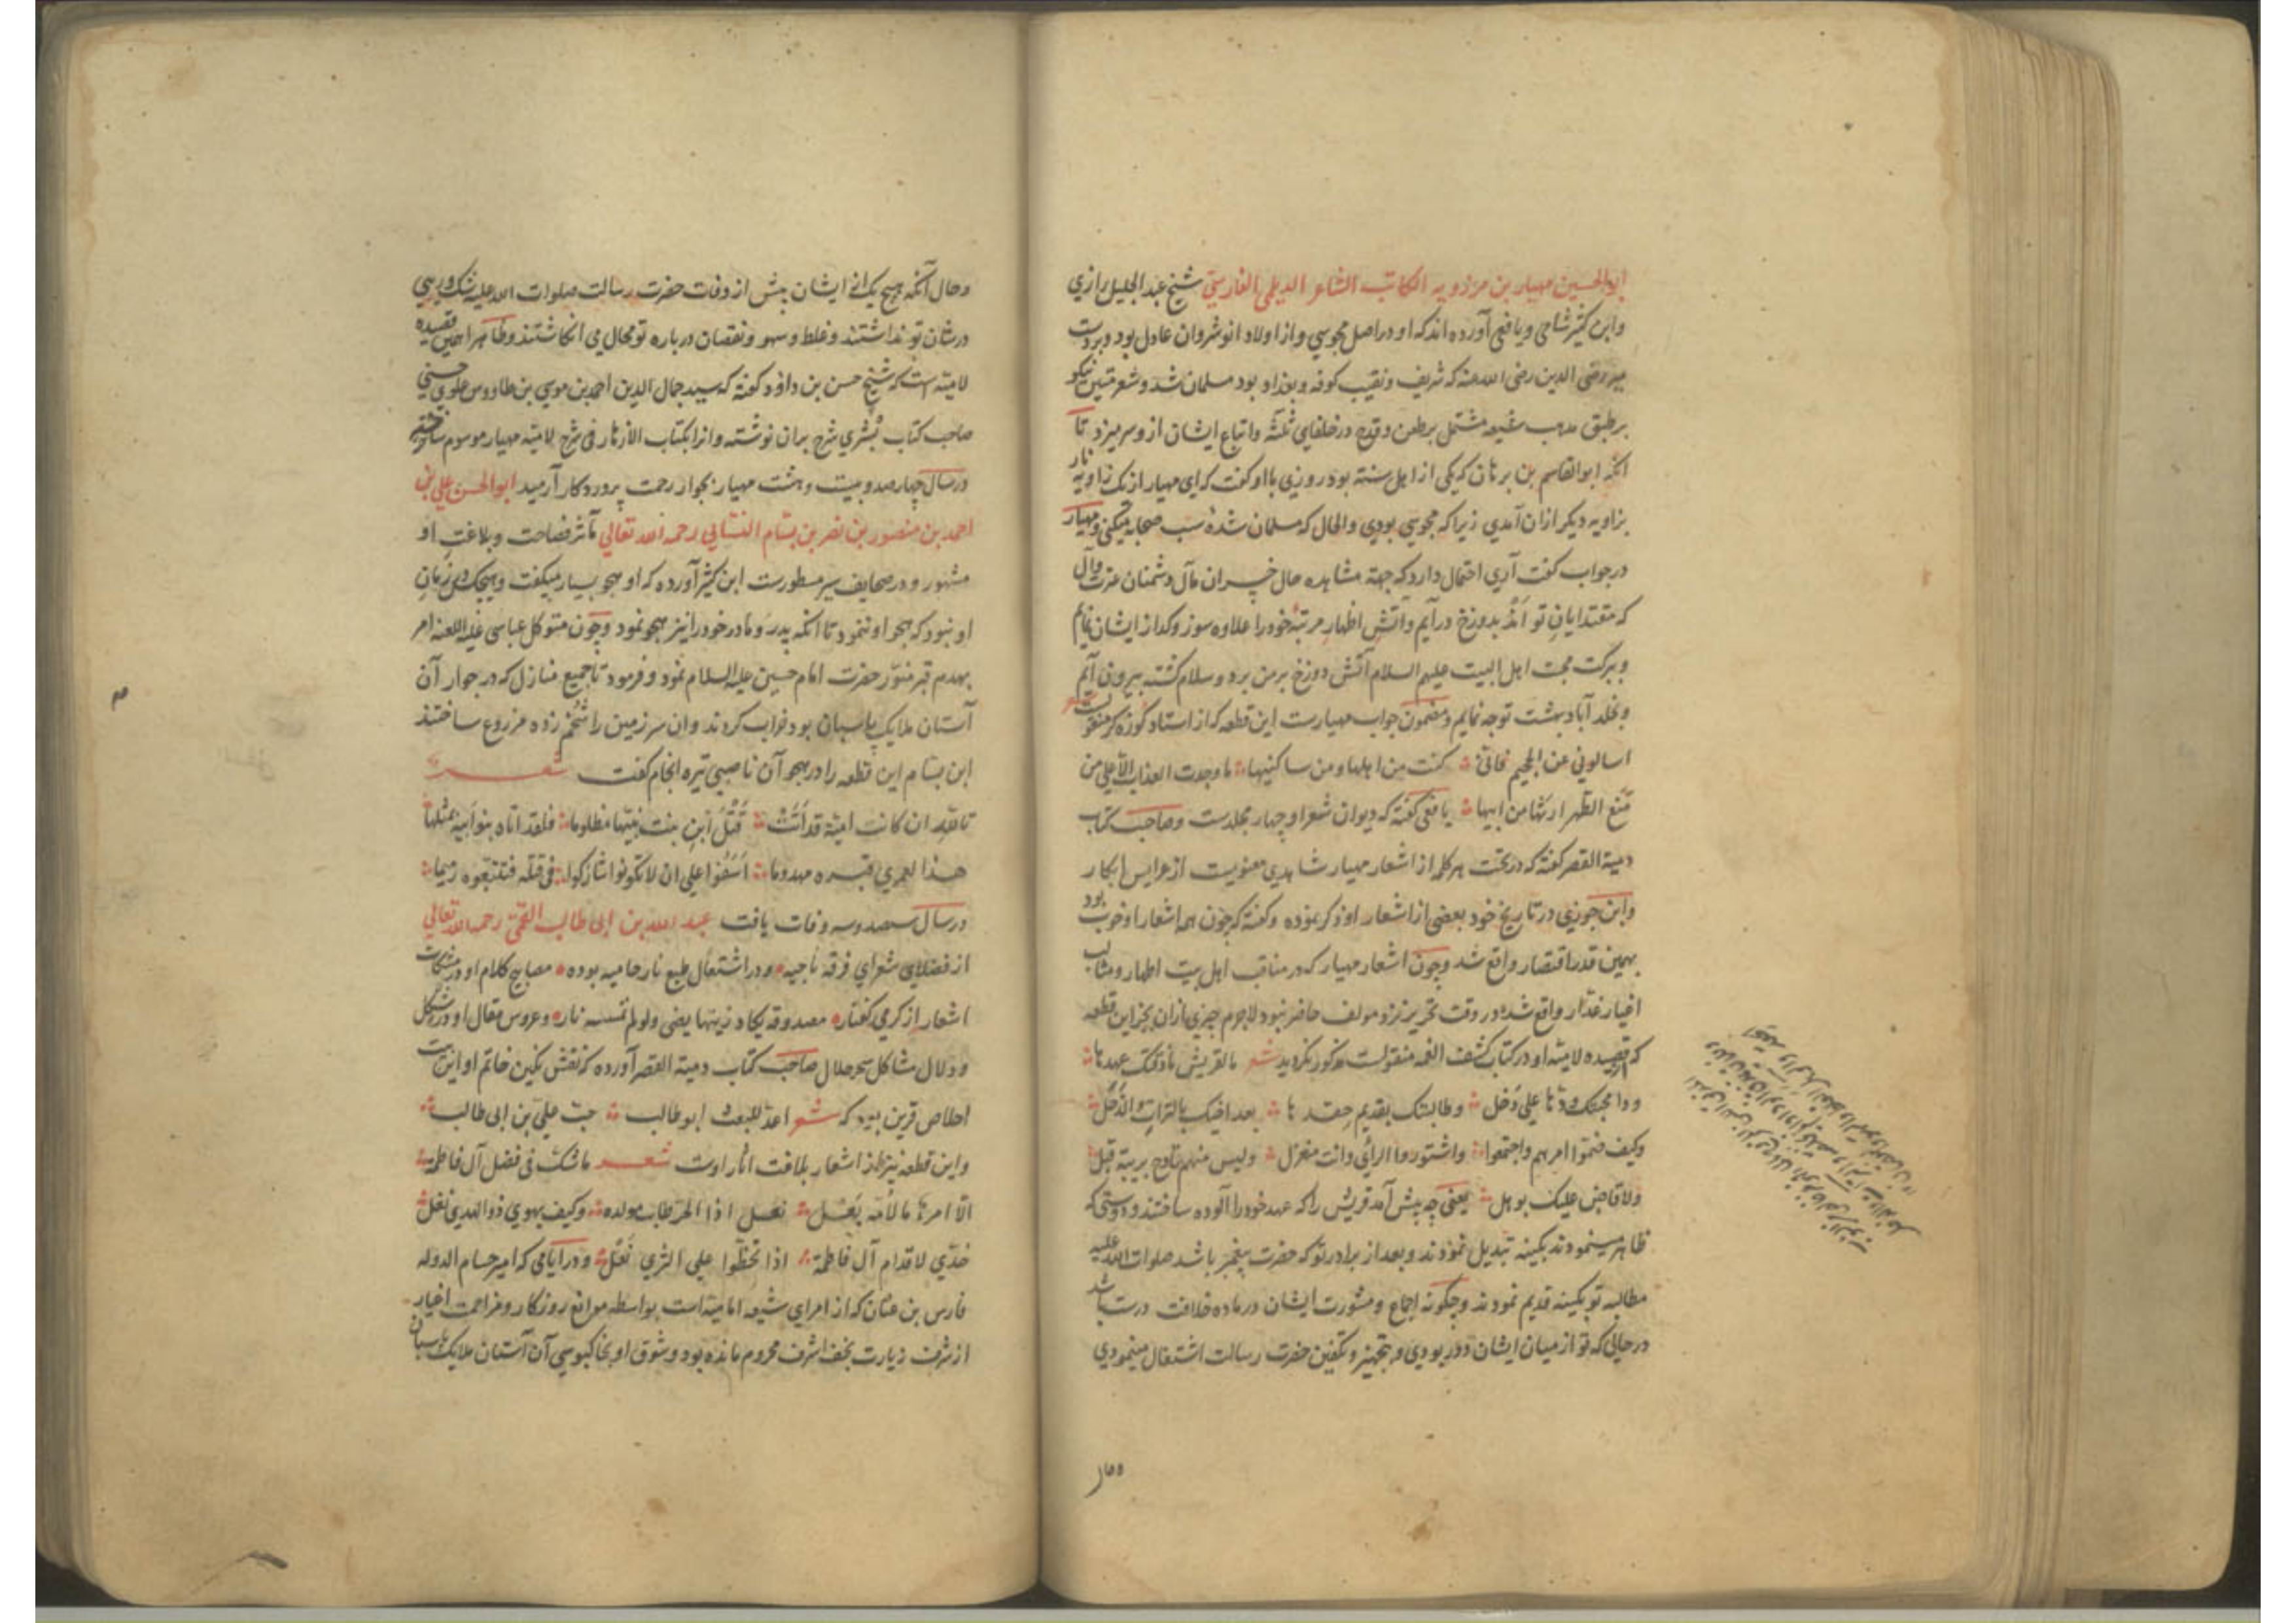 ابوالحسین مهیار بن مرزویه الکاتب الشاعر الدیلمی الفارسی شیخ عبد الجلیل رازی
وابن کثیر شامی ویافعی آورده اند که او در اصل مجوسی واز اولاد انوشروان عادل بود وبردست
میر رضی الدین رضی الله عنه که شریف ونقیب کوفه وبغداد بود مسلمان شد وشعر متین نیکو
برطبق مذهب شیعه مشتمل برطعن وقدح در خلفای ثلثه واتباع ایشان ازو سر میزد تا
انکه ابوالقاسم بن برهان که یکی از اهل سنة بود روزی با او کفت که ای مهیار از یک زاویه نار
بزاویه دیکر ازان آمدی زیرا که مجوسی بودی والحال که مسلمان شدهٔ سب صحابه میکنی ومهیار
درجواب کفت آری احتمال دارد که جهة مشاهده حال خسران مآل دشمنان عزت وآل
که مقتدایان تو اند بدوزخ درآیم وآتش اظهار مرتبهٔ خود را علاوه سوز وکداز ایشان نمایم
وببرکت محبت اهل البیت علیهم السلام آتش دوزخ برمن برد وسلام کشته بیرون آیم
وبخلد آباد بهشت توجه نمایم ومضمون جواب مهیارست این قطعه که از استاد کوزه کر منقولست شعر
اسالونی عن الجحیم فانی کنت من اهلها ومن ساکنیها ما وجدت العذاب الا علی من
منع الطهر ارثها من ابیها یافعی کفته که دیوان شعر او چهار مجلدست وصاحب کتاب
دمیة القصر کفته که در تحت هر کلمه از اشعار مهیار شاهدی معنویست از عرایس ابکار
وابن جوزی در تاریخ خود بعضی از اشعار او ذکر نموده وکفته که چون همه اشعار او خوب بود
بهمین قدر اقتصار واقع شد وچون اشعار مهیار که در مناقب اهل بیت اطهار ومثالب
اغیار غدار واقع شده در وقت تحریر نزد مولف حاضر نبود لاجرم چیزی ازان بجز این قطعه
که از قصیده لامیه او در کتاب کشف الغمه منقولست مذکور نکردید شعر ما لقریش ماذقتک عهدها
ودامجتک ودها علی دخل وطالبتک بقدیم حقدها بعد اخیک بالترات والذحل
وکیف ضموا امرهم واجتمعوا واشتوروا الرأی وانت منعزل ولیس منهم قادح بریبة قبل
ولا قاض علیک بوهل یعنی چه پیش آمد قریش را که عهد خود را آلوده ساختند ودوستی که
ظاهر مینمودند بکینه تبدیل نمودند وبعد از برادر تو که حضرت پیغمبر باشد صلوات الله علیه
مطالبه تو بکینه قدیم نمودند وچکونه اجماع ومشورت ایشان در ماده خلافت درست باشد
درحالی که تو از میان ایشان دور بودی وبتجهیز وتکفین حضرت رسالت اشتغال مینمودی
وحال آنکه هیچ یک از ایشان پیش از وفات حضرت رسالت صلوات الله علیه شک وریبی
درشان تو نداشتند وغلط وسهو ونقصان درباره تو محال می انکاشتند وظاهرا همین قصیده
لامیه است که شیخ حسن بن داود کفته که سید جمال الدین احمد بن موسی بن طاووس علوی حسنی
صاحب کتاب بشری شرح بران نوشته وانرا بکتاب الازهار فی شرح لامیه مهیار موسوم ساخته
درسال چهارصد وبیست وهشت مهیار بجوار رحمت پروردکار آرمید ابوالحسن علی بن
احمد بن منصور بن نصر بن بسام البسامی رحمه الله تعالی مآثر فصاحت وبلاغت او
مشهور ودر صحایف سیر مسطورست ابن کثیر آورده که او هجو بسیار میکفت وهیچکس در زمان
او نبود که هجو او ننمود تا انکه پدر ومادر خود را نیز هجو نمود وچون متوکل عباسی علیه اللعنه امر
بهدم قبر منور حضرت امام حسین علیه السلام نمود وفرمود تا جمیع منازل که در جوار آن
آستان ملایک پاسبان بود خراب کردند وان سرزمین را شخم زده مزروع ساختند
ابن بسام این قطعه را در هجو آن ناصبی تیره انجام کفت شعر
تالله ان کانت امیة قد اتت قتل ابن بنت نبیها مظلوما فلقد اتاه بنو ابیه بمثلها
هذا لعمری قبره مهدوما اسفوا علی ان لا تکونوا شارکوا فی قتله فتتبعوه رمیما
درسال سیصد وسه وفات یافت عبد الله بن ابی طالب القمی رحمه الله تعالی
از فضلای شعرای فرقه ناجیه ودر اشتعال طبع نار حامیه بوده مصابیح کلام او در مشکات
اشعار از کرمی کفتار مصدوقه یکاد زیتها یضی ولو لم تمسسه نار وعروس مقال او در شکل
ودلال مشاکل سحر حلال صاحب کتاب دمیة القصر آورده که نقش نکین خاتم او این بیت
اخلاص قرین بود که شعر اعد للبعث ابو طالب حب علی بن ابی طالب
واین قطعه نیز از اشعار بلاغت اثار اوست شعر ما شک فی فضل آل فاطمة
الا امرؤ ما لامه بعل نغل اذا الحر طاب مولده وکیف یهوی ذوالهدی نغل
خدی لاقدام آل فاطمة اذا تخطوا علی الثری نعل ودر ایامی که امیر حسام الدوله
فارس بن عنان که از امرای شیعه امامیه است بواسطه موانع روزکار ومزاحمت اغیار
از شرف زیارت نجف اشرف محروم مانده بود وشوق او بخاکبوسی آن آستان ملایک پاسبان